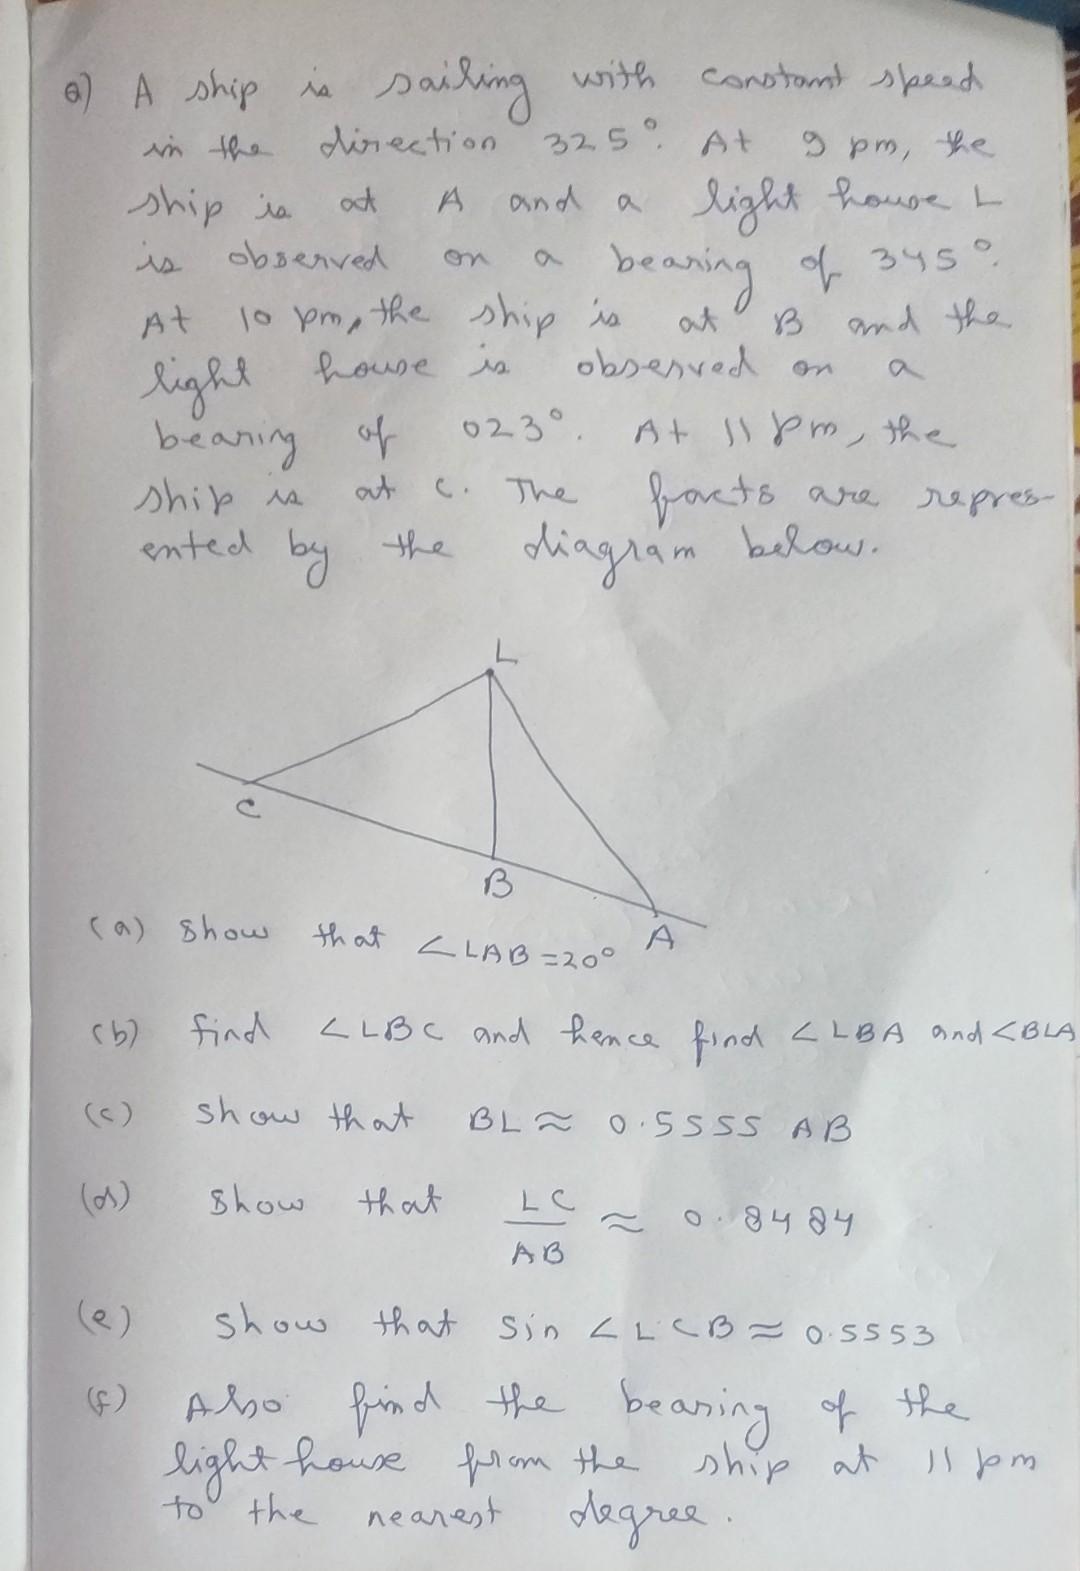 Q) A ship is sailing with constant speed
in the direction 325°. At 9 pm, the
ship is at A and a light house L
is observed on a bearing of 345°.
At 10 pm, the ship is at B and the
light house is observed on a
bearing of 023°. At 11 pm, the
ship is at C. The facts are repres-
ented by the diagram below.
L
C
B
A
(a) Show that ∠LAB = 20°
(b) find ∠LBC and hence find ∠LBA and ∠BLA
(c) show that BL ≈ 0.5555 AB
(d) Show that LC/AB ≈ 0.8484
(e) show that Sin ∠LCB ≈ 0.5553
(f) Also find the bearing of the
light house from the ship at 11 pm
to the nearest degree.